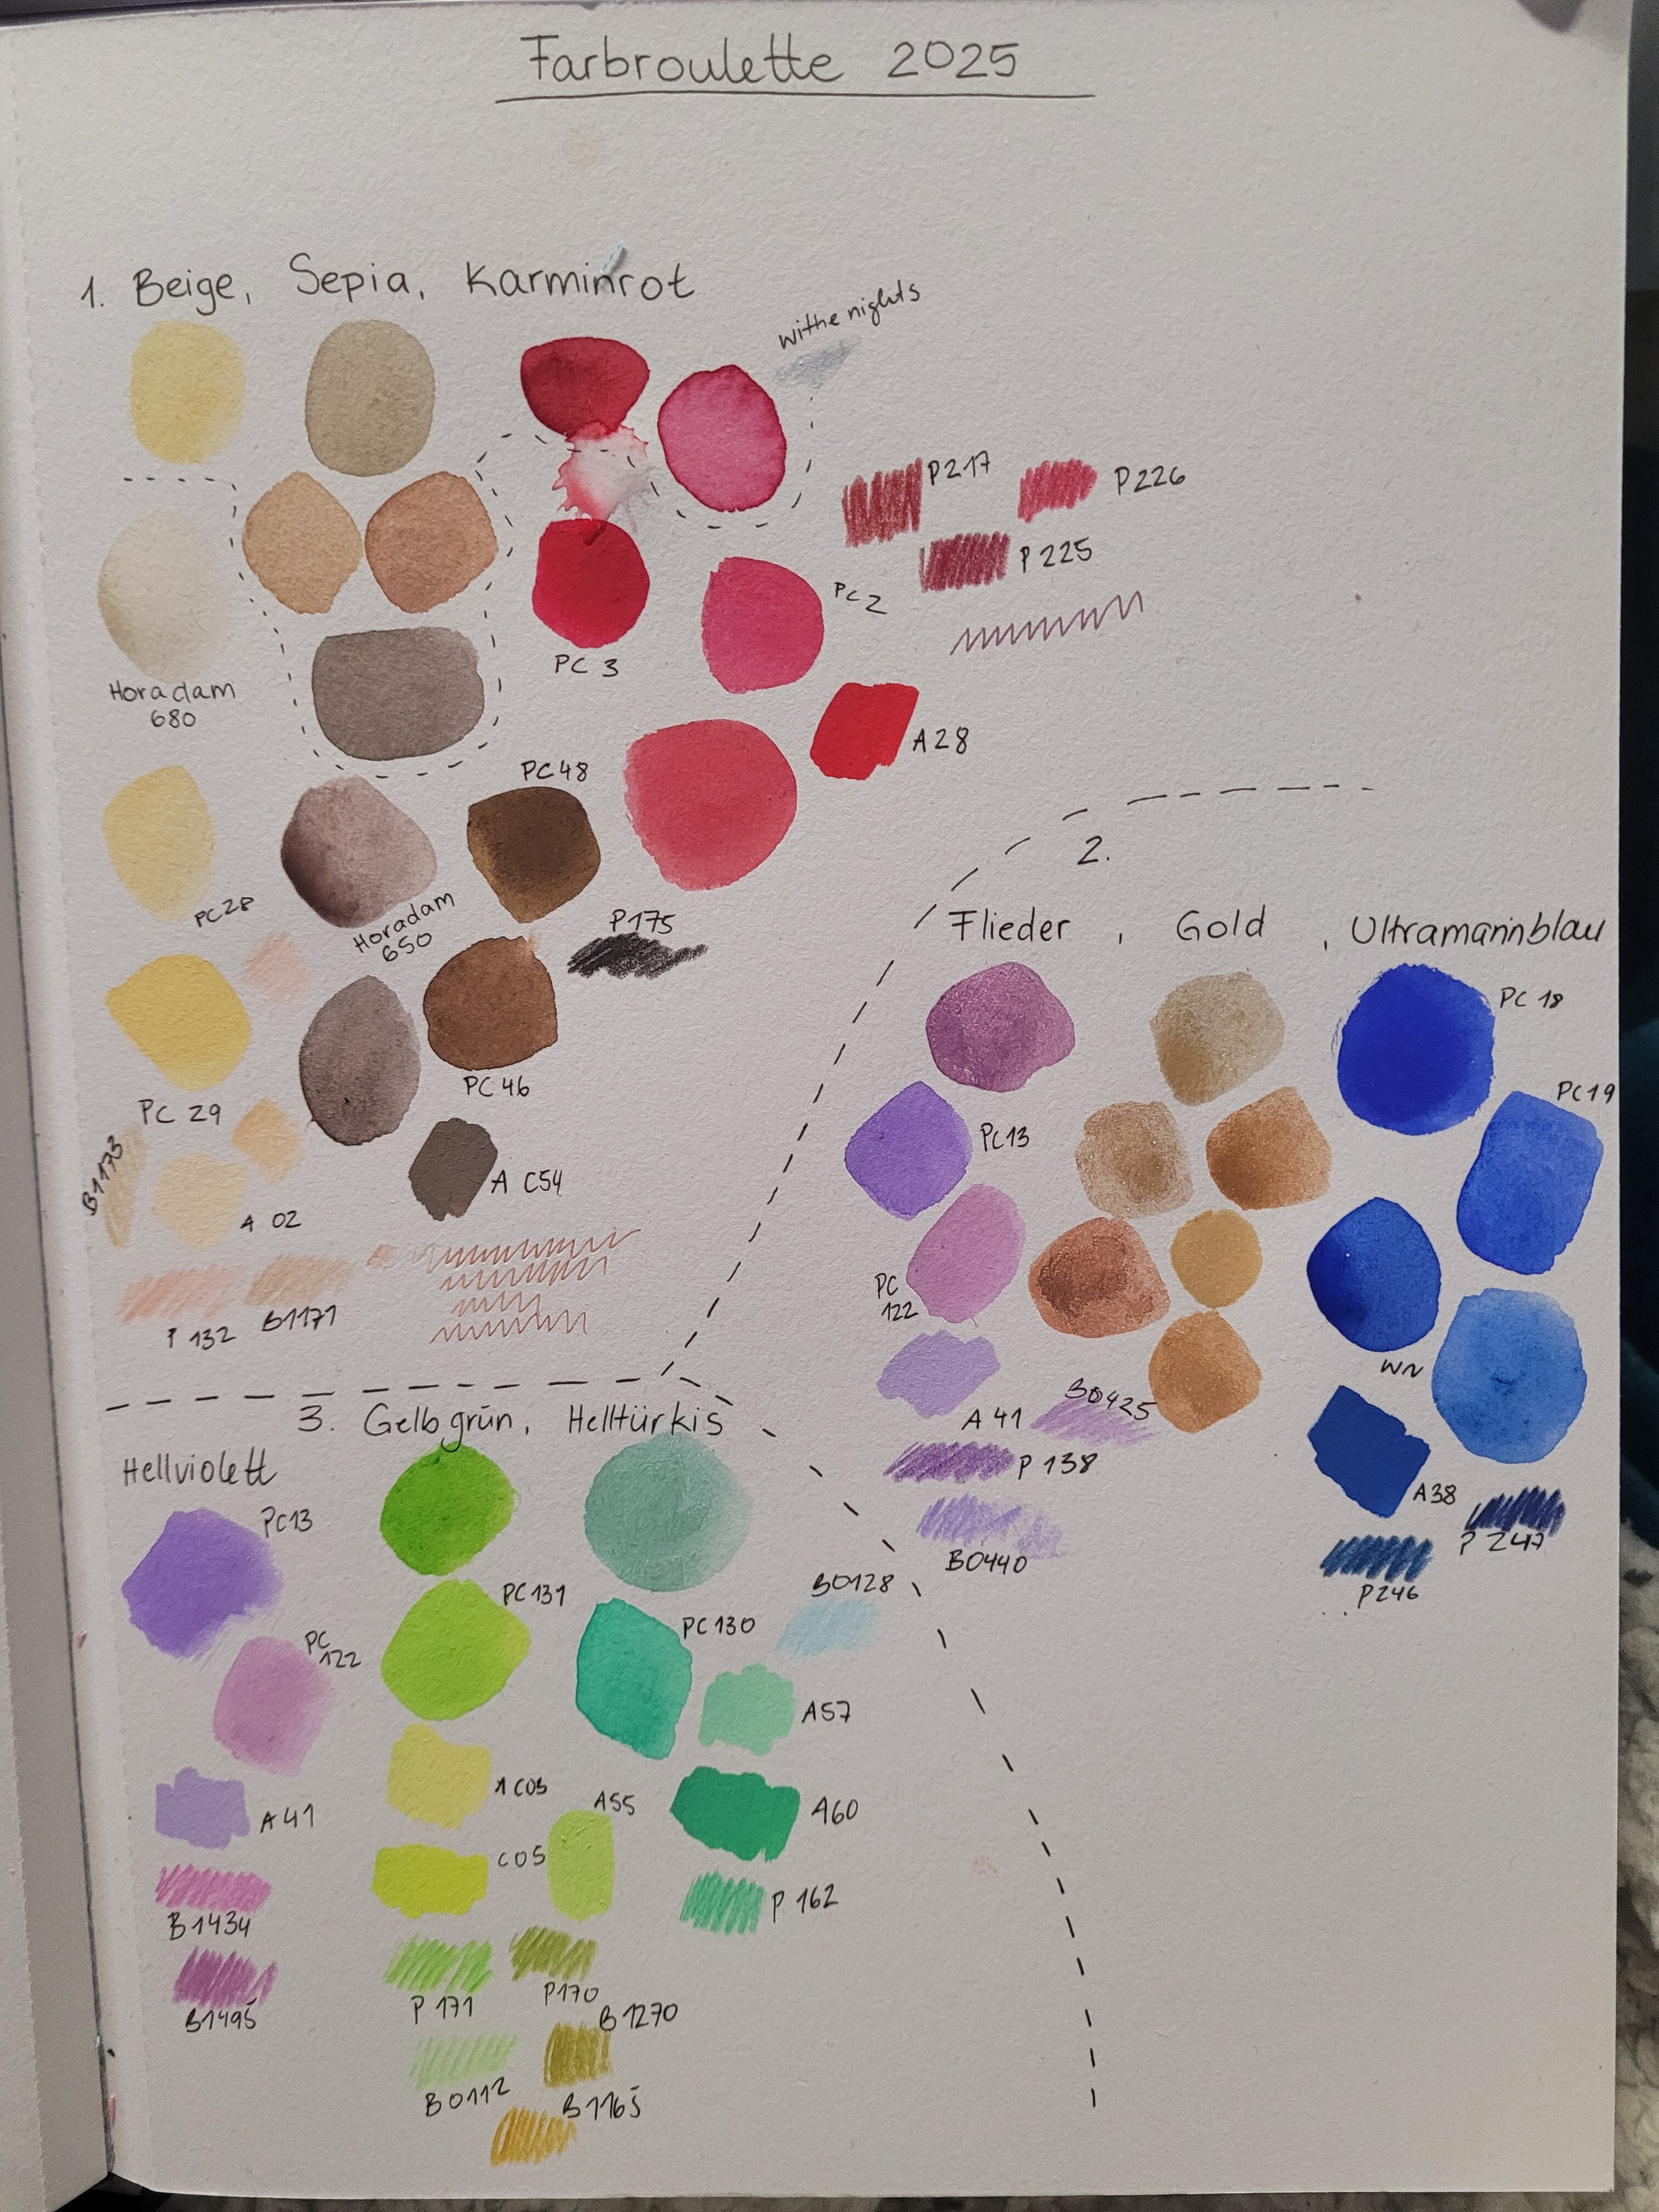 Farbroulette 2025
1. Beige, Sepia, Karminrot
withe nights
P217
P226
P 225
PC 2
PC 3
Horadam
680
A28
PC48
PC28
Horadam
650
P175
PC 29
PC 46
B1173
A 02
A C54
P 132
B1171
2.
Flieder, Gold, Ultramarinblau
PC 18
PC19
PC13
PC
122
WN
A 41
B0425
P 138
B0440
A38
P 247
P246
3. Gelbgrün, Helltürkis
Hellviolett
PC13
PC
122
A41
B1434
B1495
PC131
1 C05
A55
C05
P 171
P170
B1270
B0112
B1165
PC130
B0128
A57
A60
P 162